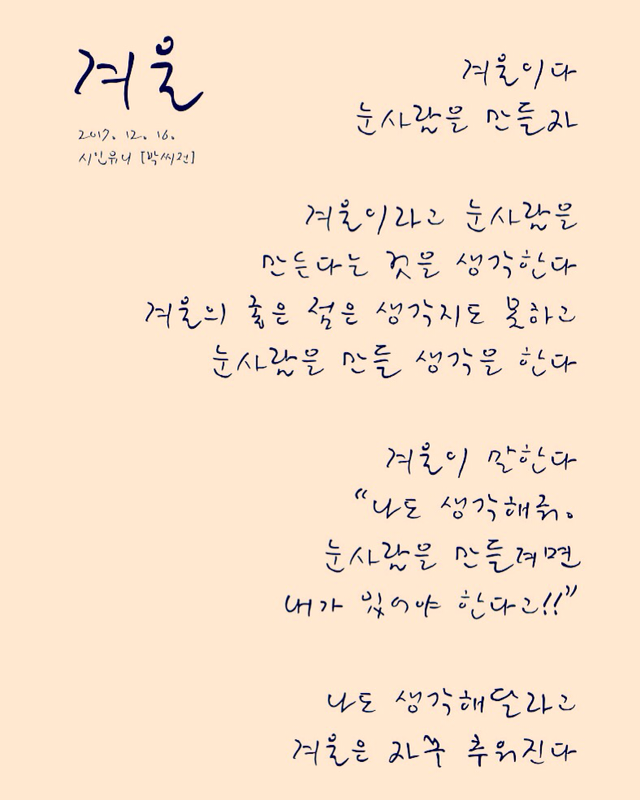 겨울
2017. 12. 16.
시인유니 [박씨전]
겨울이다
눈사람을 만들자
겨울이라고 눈사람을
만든다는 것을 생각한다
겨울의 춥은 점은 생각지도 못하고
눈사람을 만들 생각을 한다
겨울이 말한다
“나도 생각해줘.
눈사람을 만들려면
내가 있어야 한다고!!”
나도 생각해달라고
겨울은 자꾸 추워진다